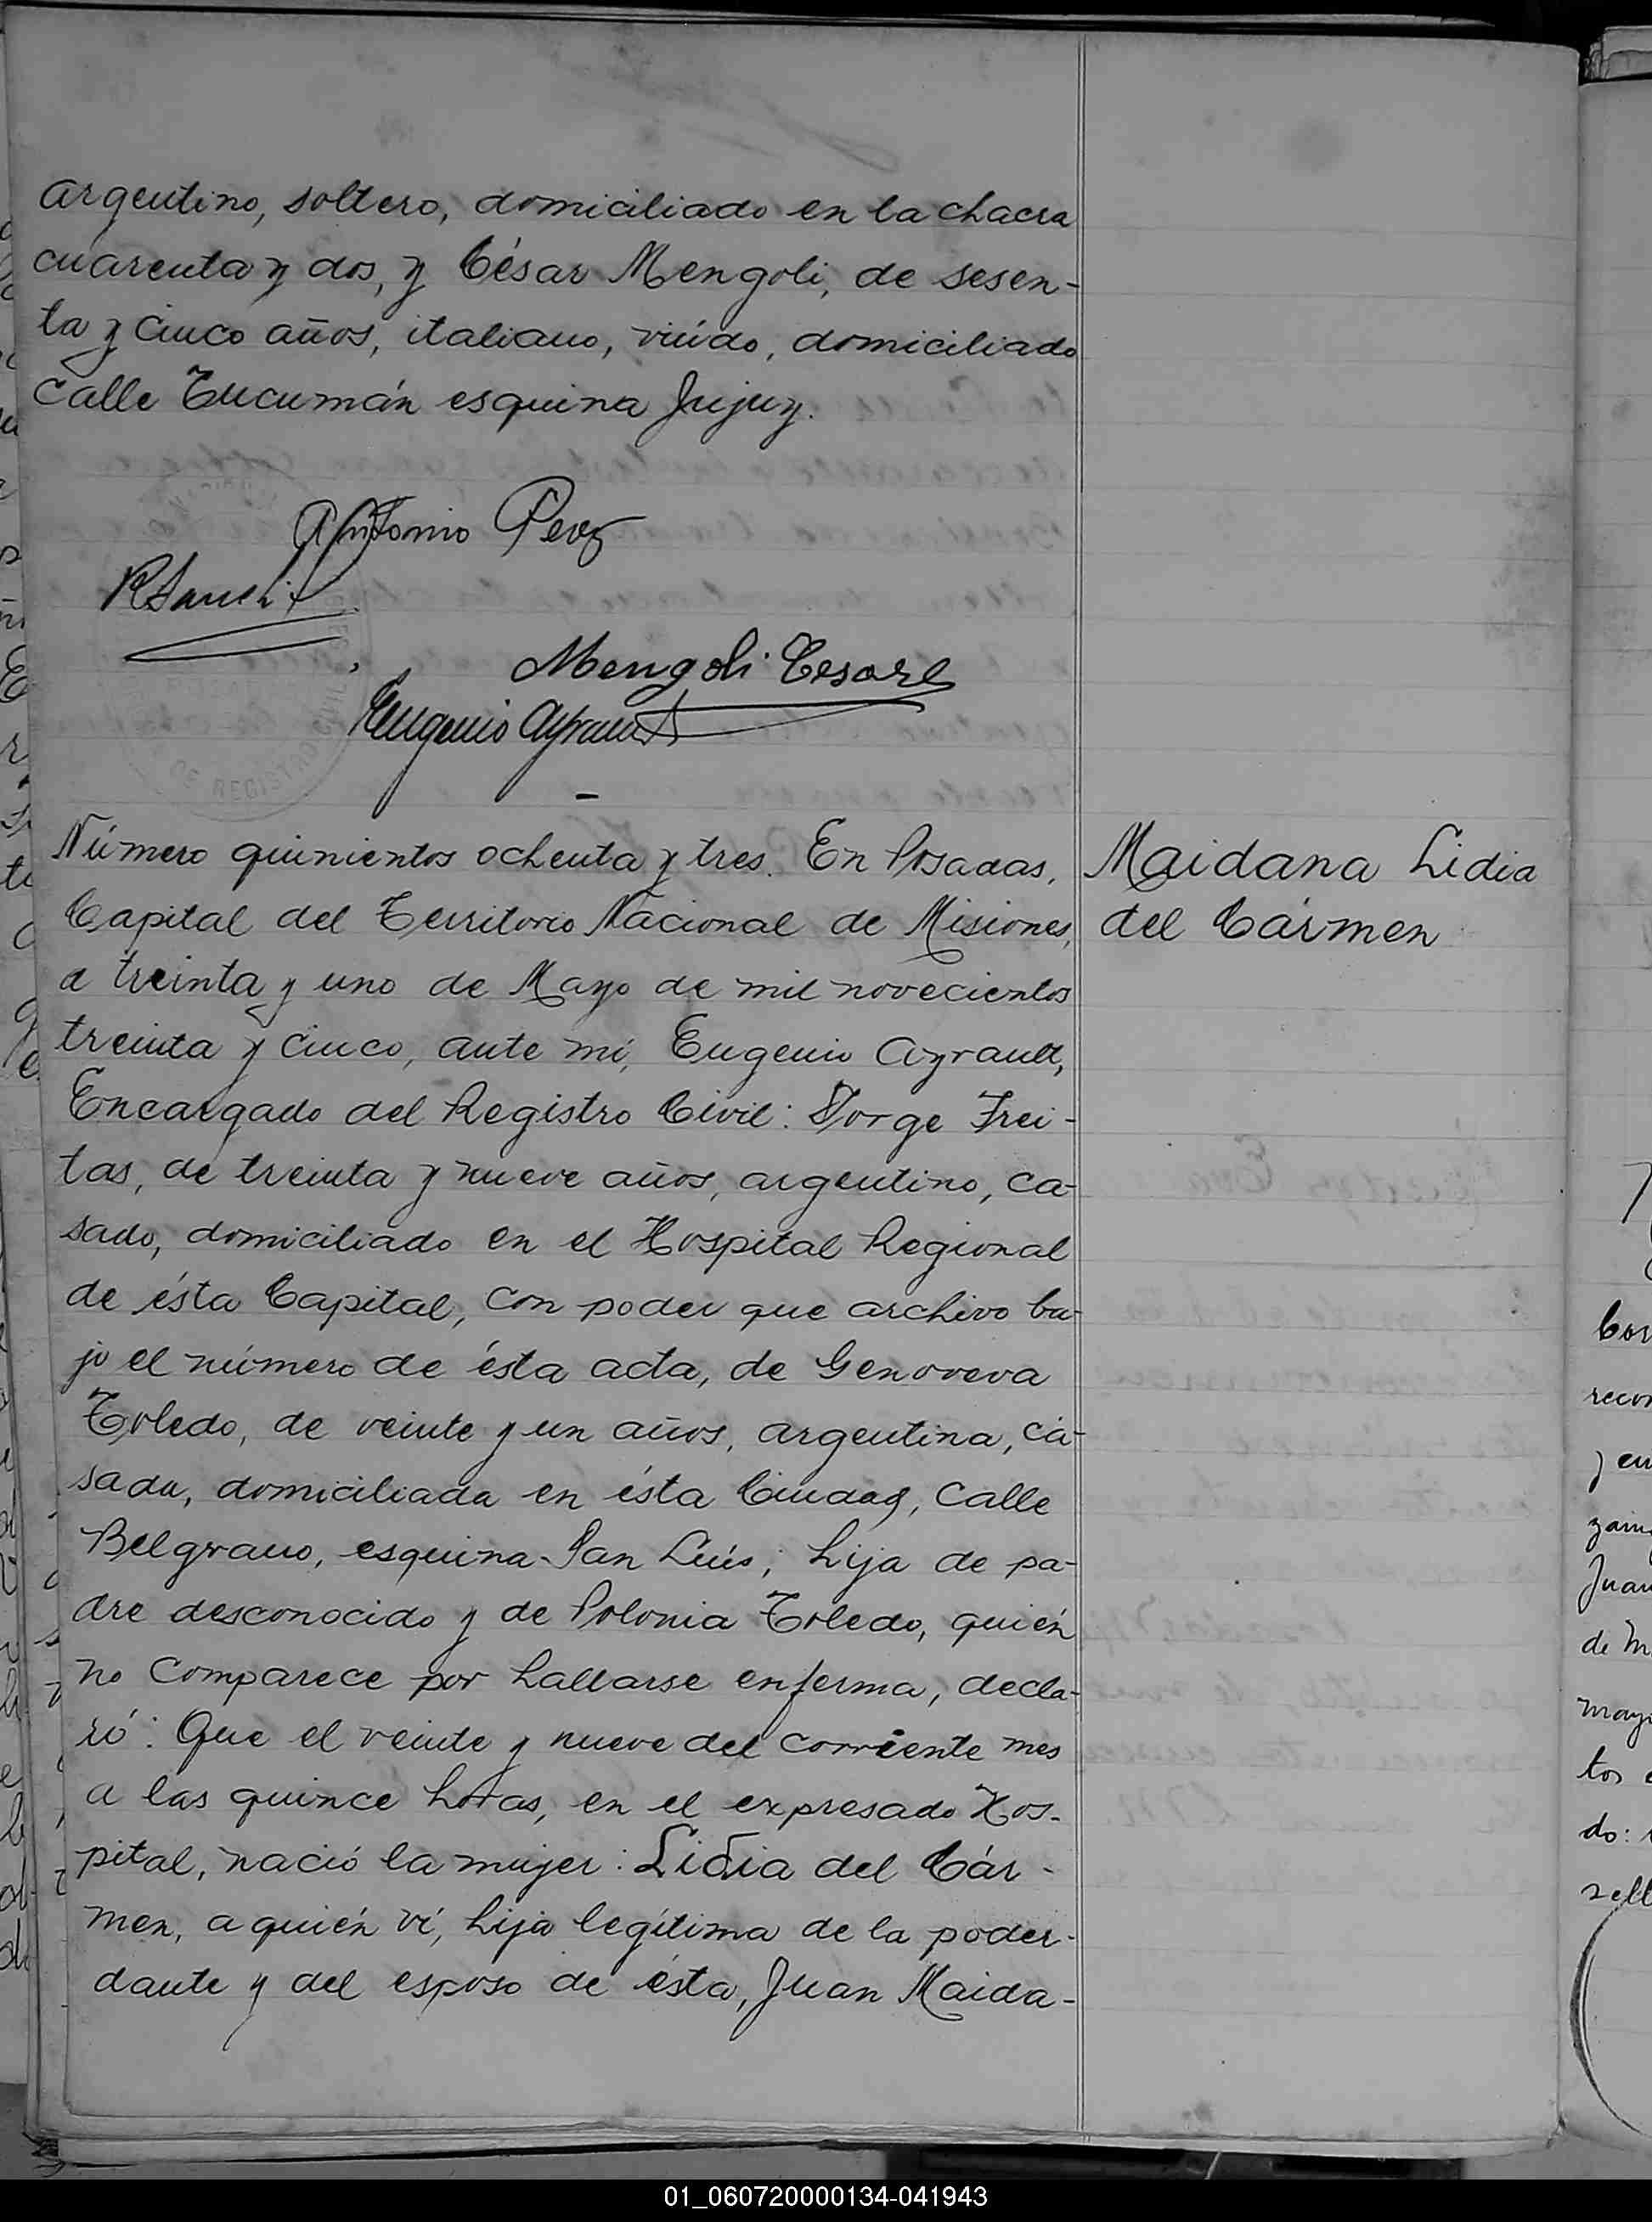 argentino, soltero, domiciliado en la chacra
cuarenta y dos, y César Mengoli, de sesen-
ta y cinco años, italiano, viúdo, domiciliado
calle Tucumán esquina Jujuy.
Antonio Perez
Mengoli Cesare
Eugenio Ayrault
DE REGISTRO CIVIL
Número quinientos ochenta y tres. En Posadas,
Capital del Territorio Nacional de Misiones,
a treinta y uno de Mayo de mil novecientos
treinta y cinco, ante mí, Eugenio Ayrault,
Encargado del Registro Civil: Jorge Frei-
tas, de treinta y nueve años, argentino, ca-
sado, domiciliado en el Hospital Regional
de ésta Capital, con poder que archivo ba-
jo el número de ésta acta, de Genoveva
Toledo, de veinte y un años, argentina, ca-
sada, domiciliada en ésta Ciudad, calle
Belgrano, esquina San Luís, hija de pa-
dre desconocido y de Polonia Toledo, quién
no comparece por hallarse enferma, decla-
ró: Que el veinte y nueve del corriente mes
a las quince horas, en el expresado Hos-
pital, nació la mujer: Lidia del Cár-
men, a quién ví, hija legítima de la poder-
dante y del esposo de ésta, Juan Maida-
Maidana Lidia
del Cármen
01_060720000134-041943